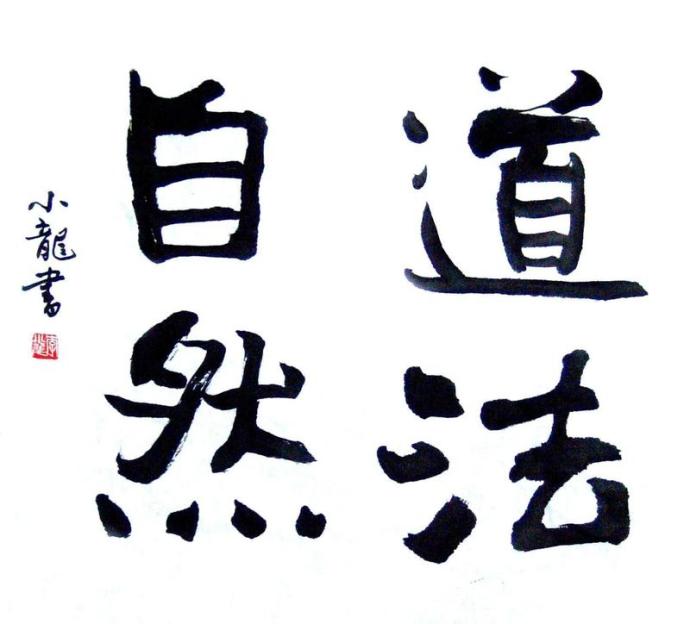 道法
自然
小龍書